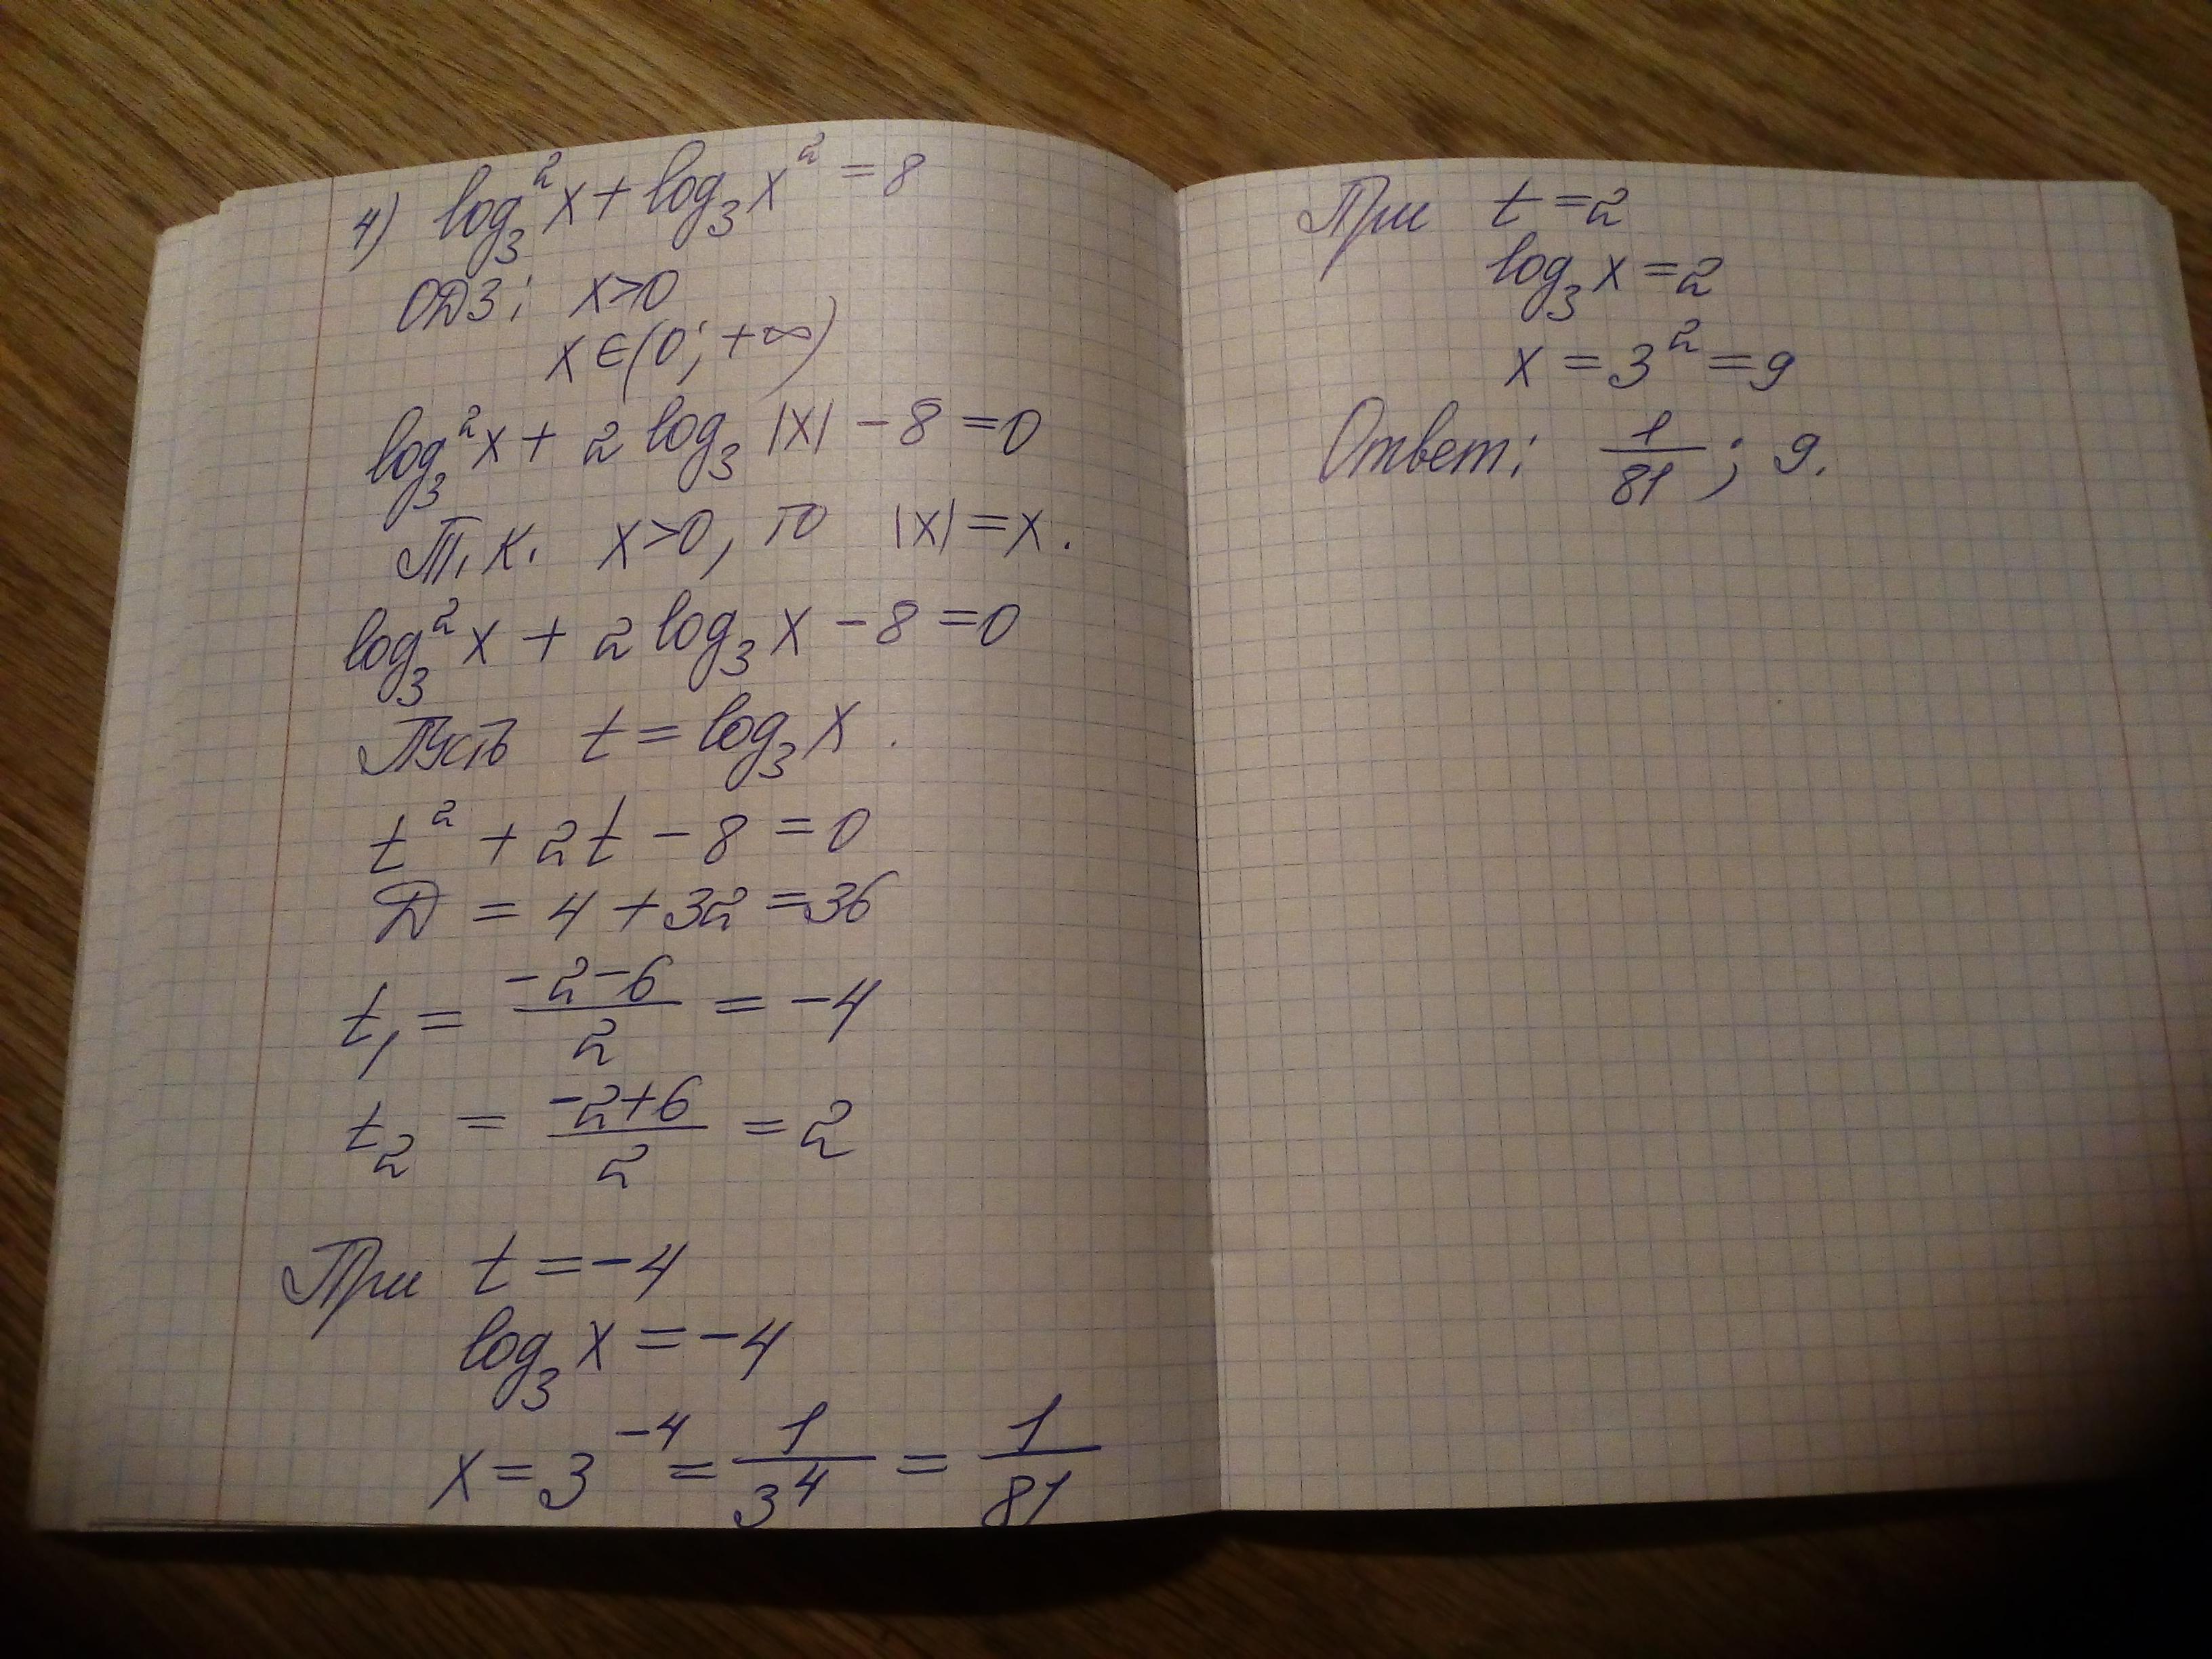 4) log₃²x + log₃x² = 8
ОДЗ: x>0
x∈(0; +∞)
log₃²x + 2 log₃|x| - 8 = 0
Т.к. x>0, то |x| = x.
log₃²x + 2 log₃x - 8 = 0
Пусть t = log₃x.
t² + 2t - 8 = 0
D = 4 + 32 = 36
t₁ = (-2-6)/2 = -4
t₂ = (-2+6)/2 = 2
При t = -4
log₃x = -4
x = 3⁻⁴ = 1/3⁴ = 1/81
При t = 2
log₃x = 2
x = 3² = 9
Ответ: 1/81; 9.